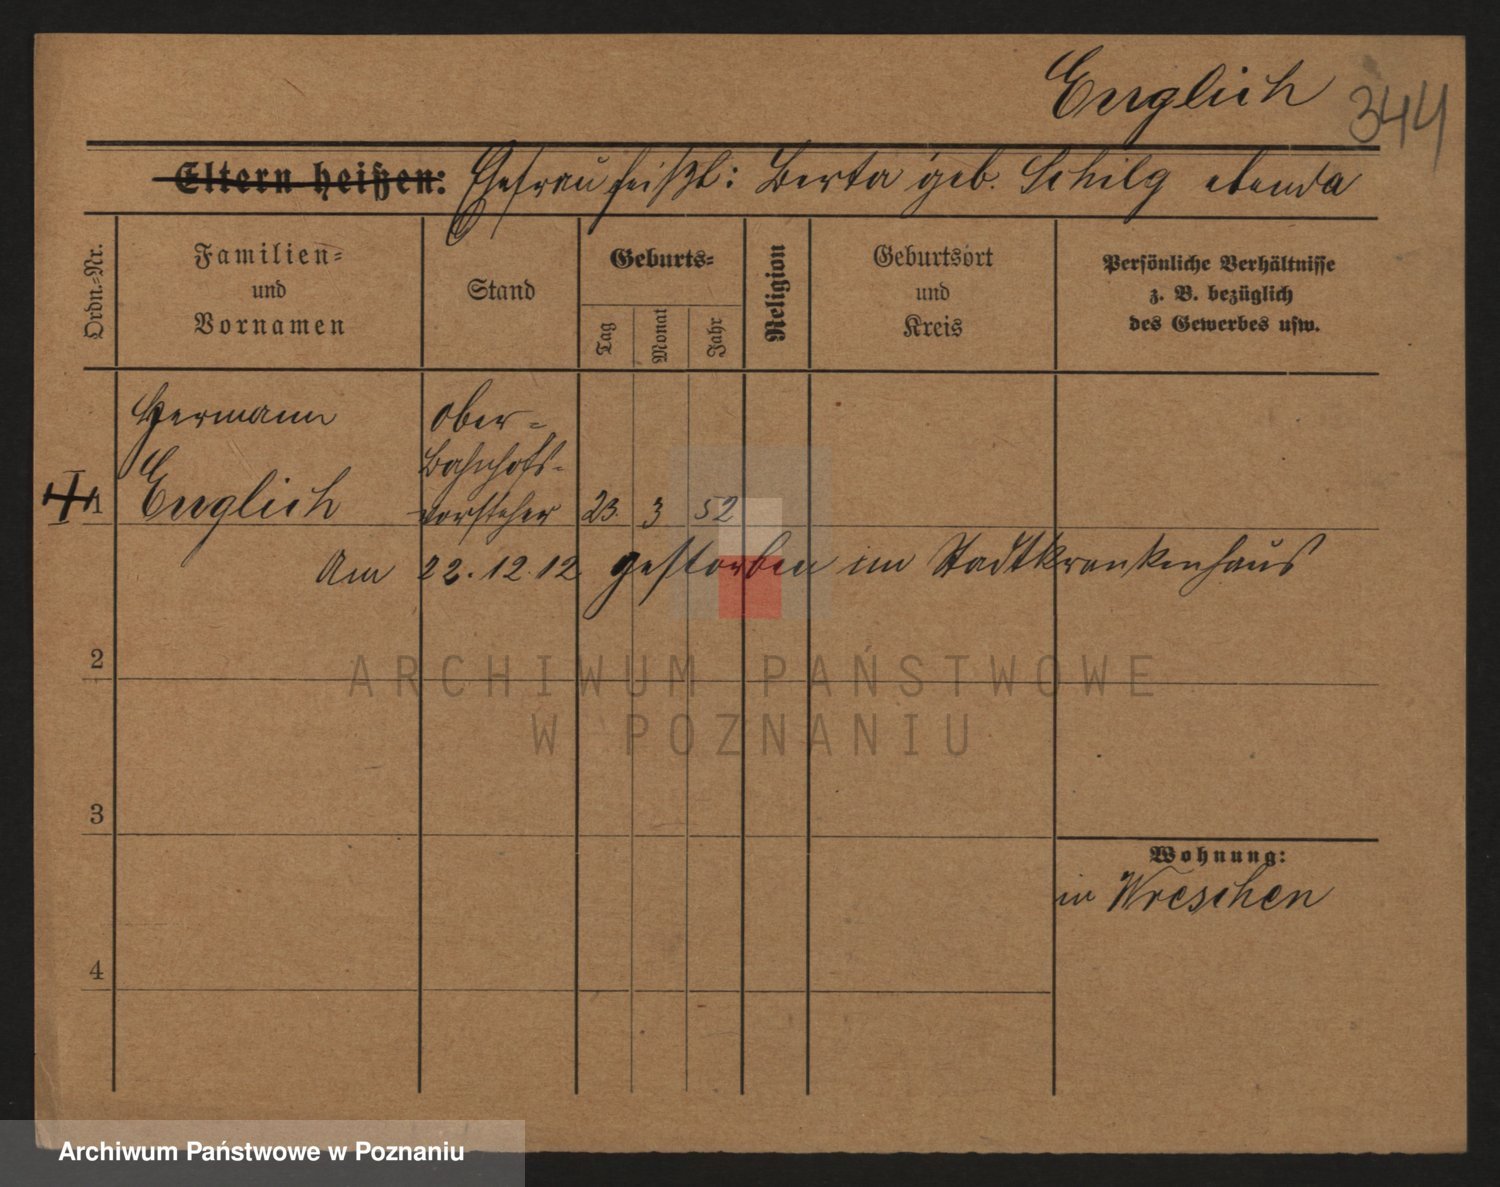 Englich 344
Eltern heißen: Ehefrau heißt: Berta geb. Schilg ebenda
Ordn.-Nr.
Familien- und Vornamen
Stand
Geburts-
Tag
Monat
Jahr
Religion
Geburtsort und Kreis
Persönliche Verhältnisse
z. B. bezüglich
des Gewerbes usw.
Hermann Ober-
Bahnhofs-
1 Englich vorsteher 23. 3 52
Am 22.12.12 gestorben im Stadtkrankenhaus
2
ARCHIWUM PAŃSTWOWE
W POZNANIU
3
Wohnung:
in Wreschen
4
Archiwum Państwowe w Poznaniu